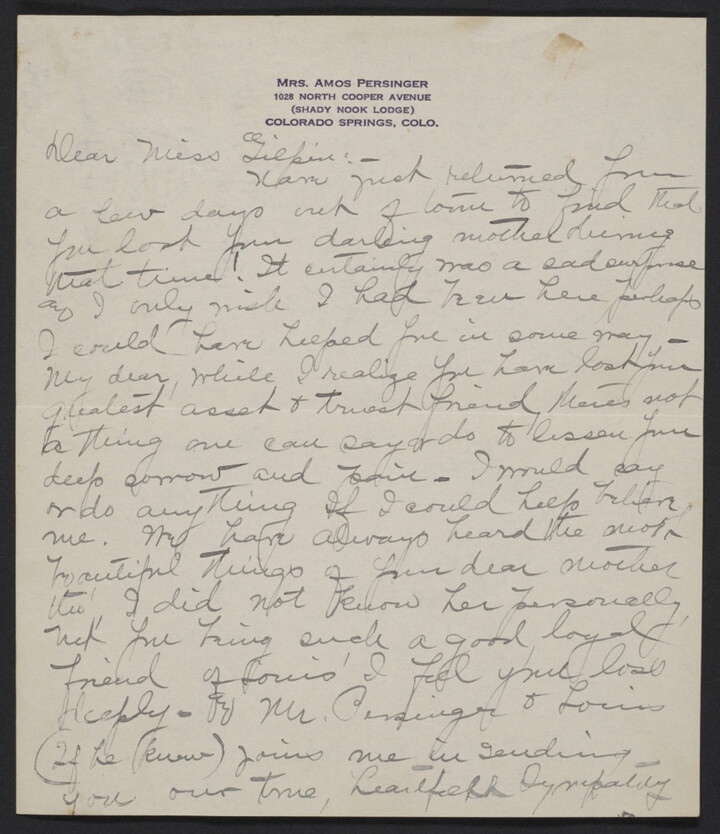 MRS. AMOS PERSINGER
1028 NORTH COOPER AVENUE
(SHADY NOOK LODGE)
COLORADO SPRINGS, COLO.
Dear Miss Gilpin:-
Have just returned from
a few days out of town to find that
you lost your darling mother during
that time! It certainly was a sad surprise
as I only wish I had been here perhaps
I could have helped you in some way -
My dear, while I realize you have lost your
greatest asset & truest friend, there's not
a thing one can say or do to lessen your
deep sorrow and pain - I would say
or do anything if I could help believe
me. We have always heard the most
beautiful things of your dear mother
tho' I did not know her personally,
but you being such a good, loyal
friend of Louis' I feel your loss
deeply - Mr. Persinger & Louis
(If he knew) joins me in sending
you our true, heartfelt sympathy